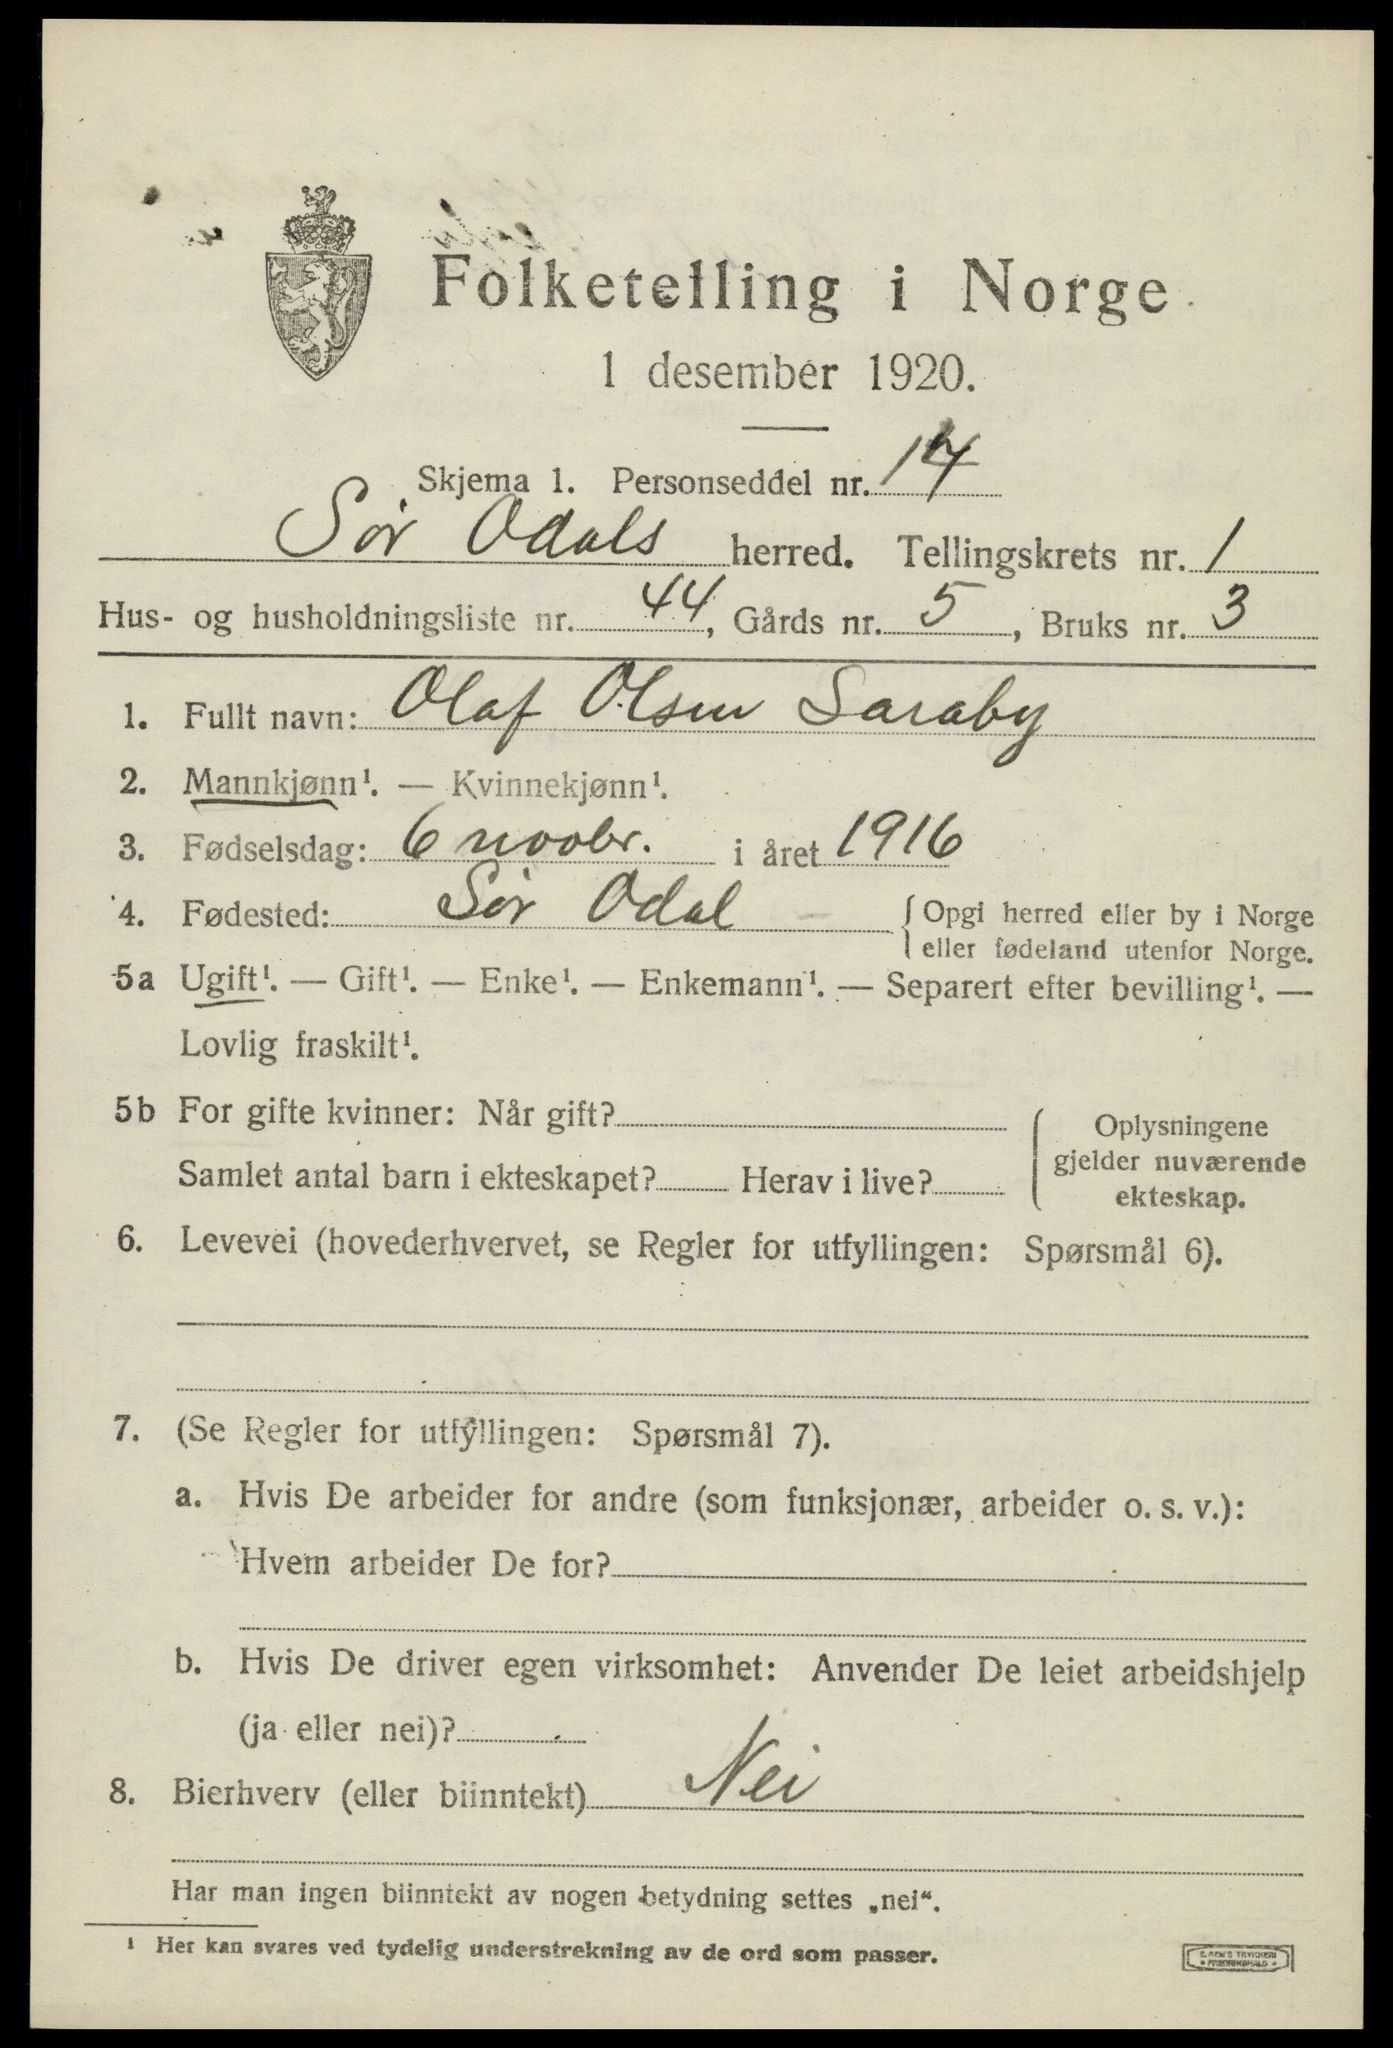 Folketelling i Norge
1 desember 1920.
Skjema 1. Personseddel nr. 14
Sør Odals herred. Tellingskrets nr. 1
Hus- og husholdningsliste nr. 44, Gårds nr. 5, Bruks nr. 3
1. Fullt navn: Olaf Olsen Saraby
2. Mannkjønn¹. — Kvinnekjønn¹.
3. Fødselsdag: 6 novbr. i året 1916
4. Fødested: Sør Odal { Opgi herred eller by i Norge
eller fødeland utenfor Norge.
5a Ugift¹. — Gift¹. — Enke¹. — Enkemann¹. — Separert efter bevilling¹. —
Lovlig fraskilt¹.
5b For gifte kvinner: Når gift?
Samlet antal barn i ekteskapet? Herav i live?
Oplysningene
gjelder nuværende
ekteskap.
6. Levevei (hovederhvervet, se Regler for utfyllingen: Spørsmål 6).
7. (Se Regler for utfyllingen: Spørsmål 7).
a. Hvis De arbeider for andre (som funksjonær, arbeider o. s. v.):
Hvem arbeider De for?
b. Hvis De driver egen virksomhet: Anvender De leiet arbeidshjelp
(ja eller nei)?
8. Bierhverv (eller biinntekt) Nei
Har man ingen biinntekt av nogen betydning settes „nei“.
¹ Her kan svares ved tydelig understrekning av de ord som passer.
TRYKKERI
FREDRIKSHALD